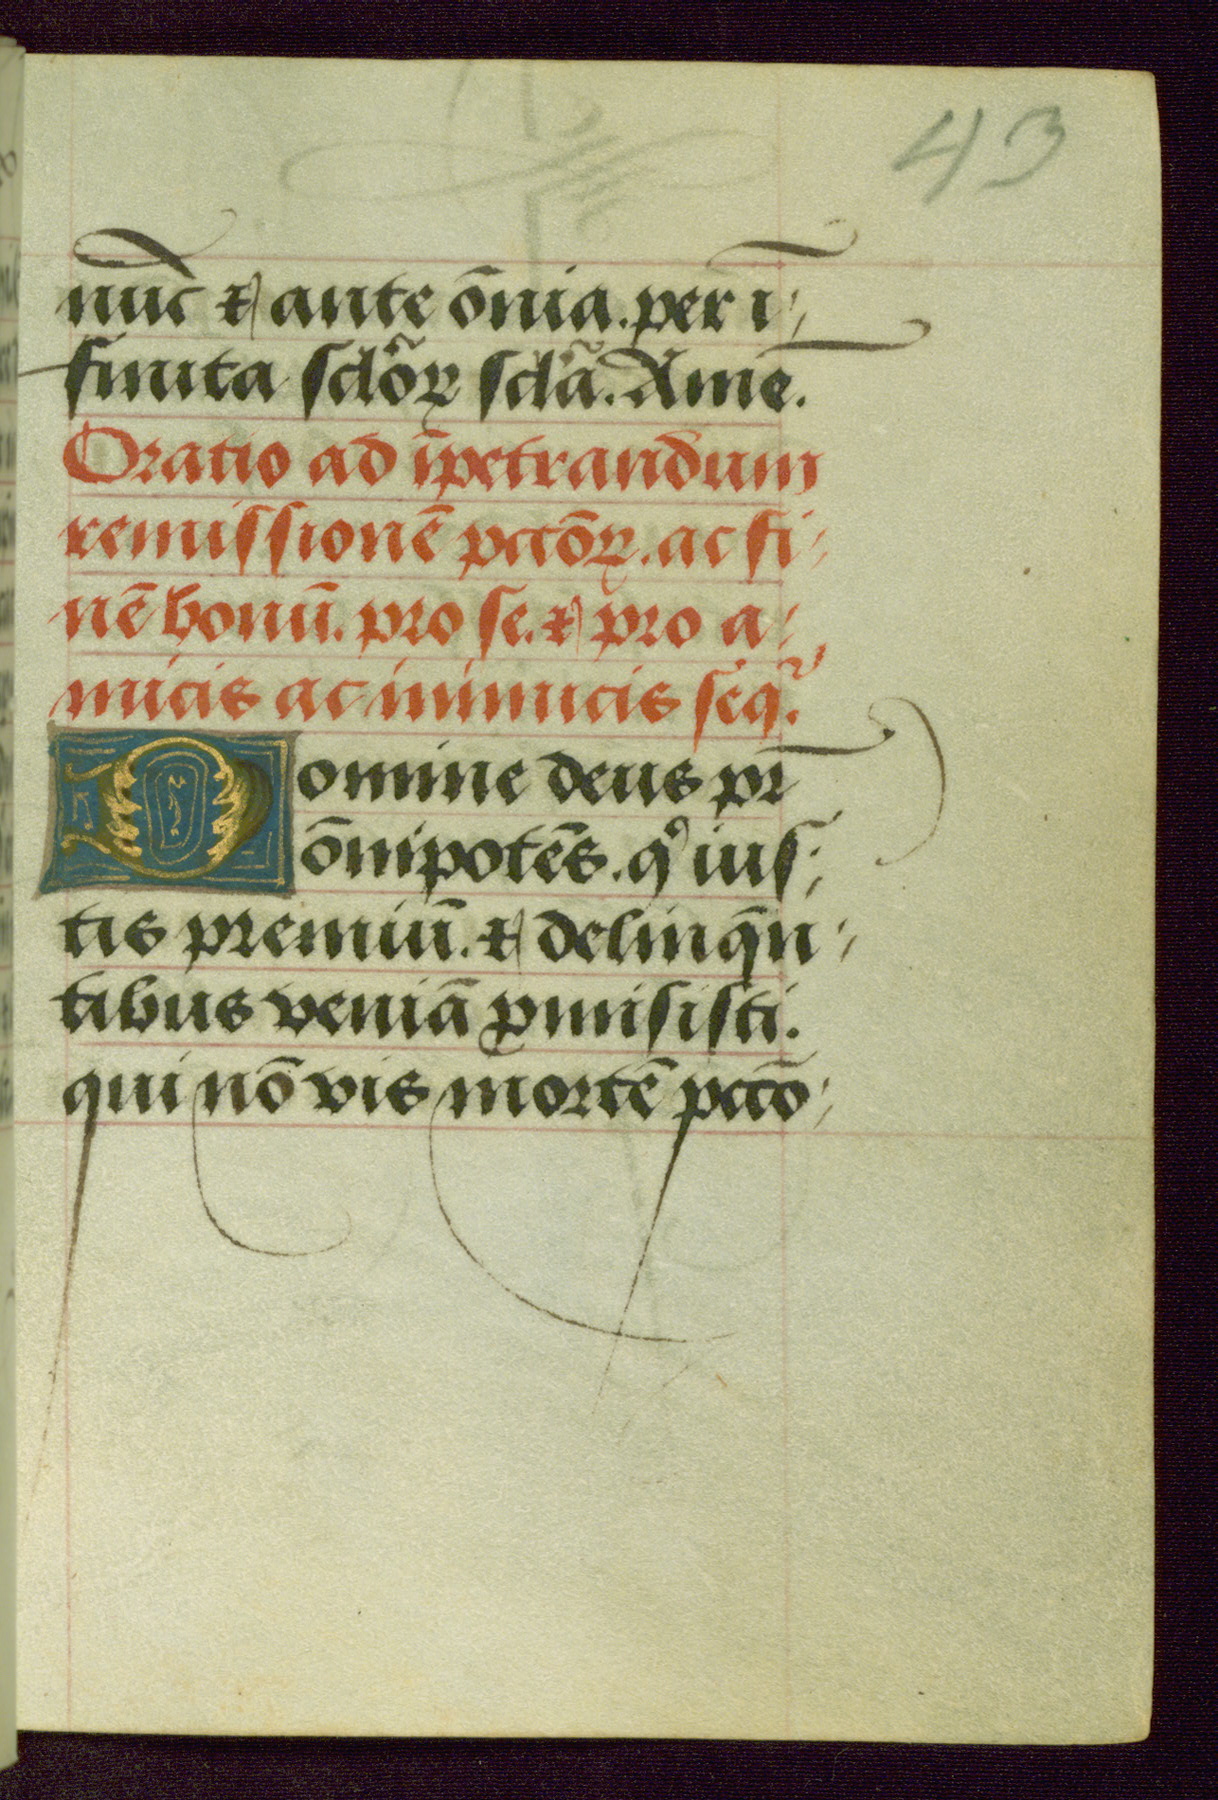 43
nūc ⁊ ante ōnia. per ī-
finita sclōꝝ sclā. Amē.
Oratio ad īpetrandum
remissionē pctōꝝ. ac fi-
nē bonū. pro se. ⁊ pro a-
micis ac inimicis seq̄.
Domine deus pr̄
ōnipotēs. qͥ ius-
tis premiū. ⁊ delinqūn-
tibus veniā ꝓmisisti.
qui nō vis mortē pctō-